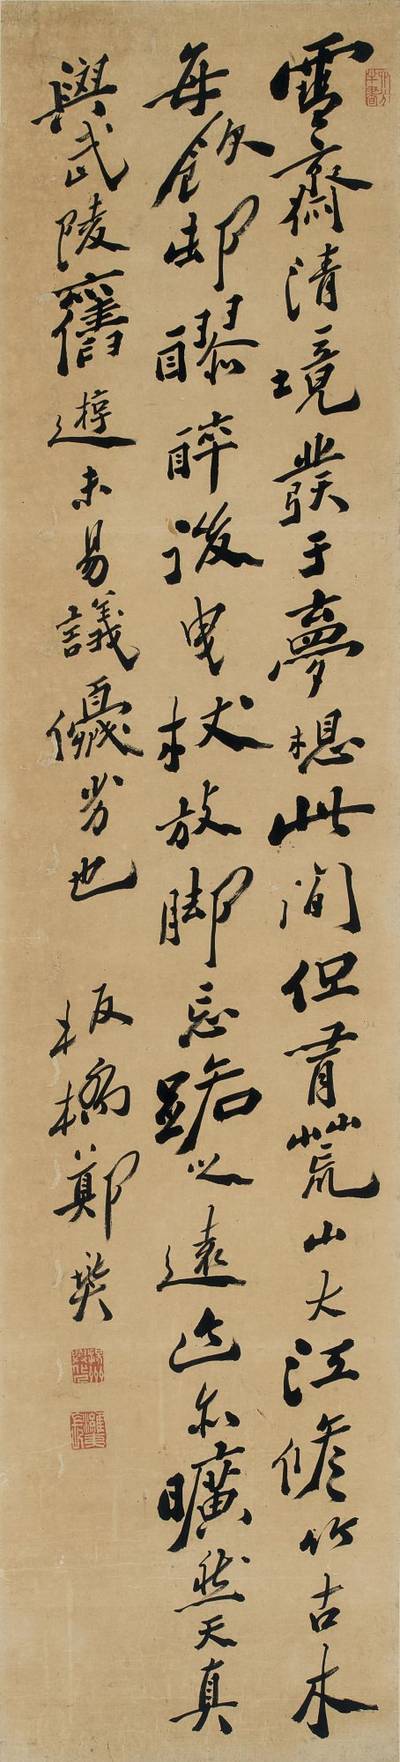 雪齋清境發于夢想此間但有荒山大江脩竹古木
每飲邨醪醉後曳杖放脚忘路之遠近亦曠然天真
與武陵舊遊未易議優劣也 板橋鄭燮